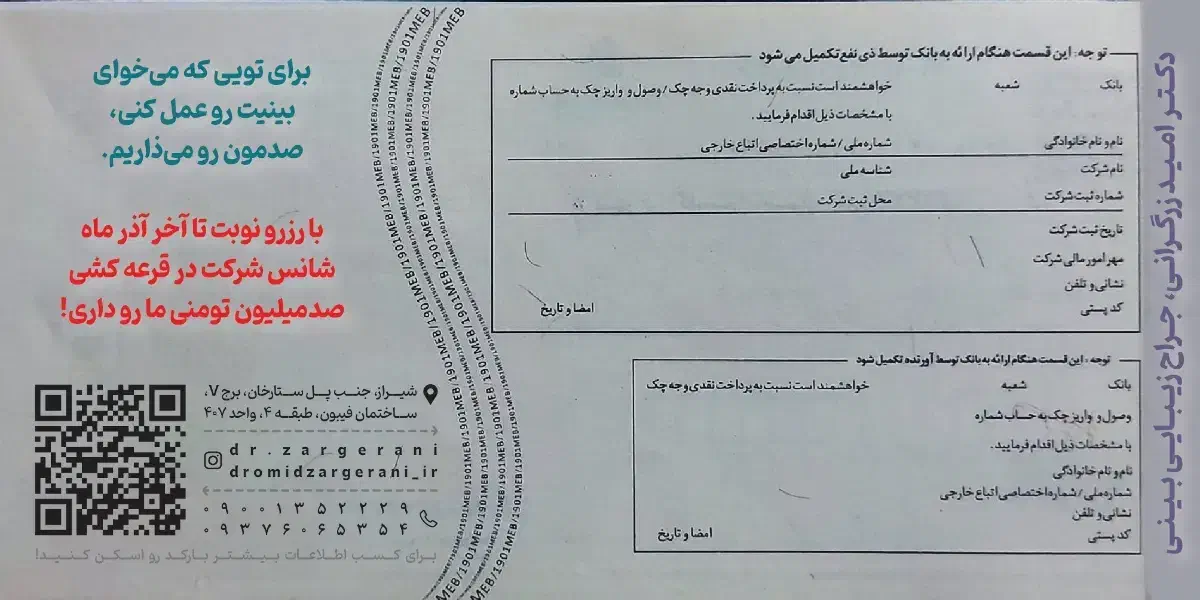 توجه: این قسمت هنگام ارائه به بانک توسط ذی نفع تکمیل می شود
بانک شعبه خواهشمند است نسبت به پرداخت نقدی وجه چک / وصول و واریز چک به حساب شماره
با مشخصات ذیل اقدام فرمایید.
نام و نام خانوادگی شماره ملی / شماره اختصاصی اتباع خارجی
نام شرکت شناسه ملی
شماره ثبت شرکت محل ثبت شرکت
تاریخ ثبت شرکت
مهر امور مالی شرکت
نشانی و تلفن
کد پستی امضا و تاریخ
توجه: این قسمت هنگام ارائه به بانک توسط آورنده تکمیل شود
بانک شعبه خواهشمند است نسبت به پرداخت نقدی وجه چک
وصول و واریز چک به حساب شماره
با مشخصات ذیل اقدام فرمایید.
نام و نام خانوادگی
شماره ملی / شماره اختصاصی اتباع خارجی
نشانی و تلفن
کد پستی امضا و تاریخ
دکتر امید زرگرانی، جراح زیبایی بینی
1901MEB/1901MEB/1901MEB/1901MEB/1901MEB/1901MEB
برای تویی که می‌خوای
بینیت رو عمل کنی،
صدمون رو می‌ذاریم.
با رزرو نوبت تا آخر آذر ماه
شانس شرکت در قرعه کشی
صدمیلیون تومنی ما رو داری!
شیراز، جنب پل ستارخان، برج ۷،
ساختمان فیبون، طبقه ۴، واحد ۴۰۷
dr.zargerani
dromidzargerani_ir
۰۹۰۰۱۳۵۲۲۲۹
۰۹۳۷۶۰۶۵۳۵۴
برای کسب اطلاعات بیشتر بارکد رو اسکن کنید!